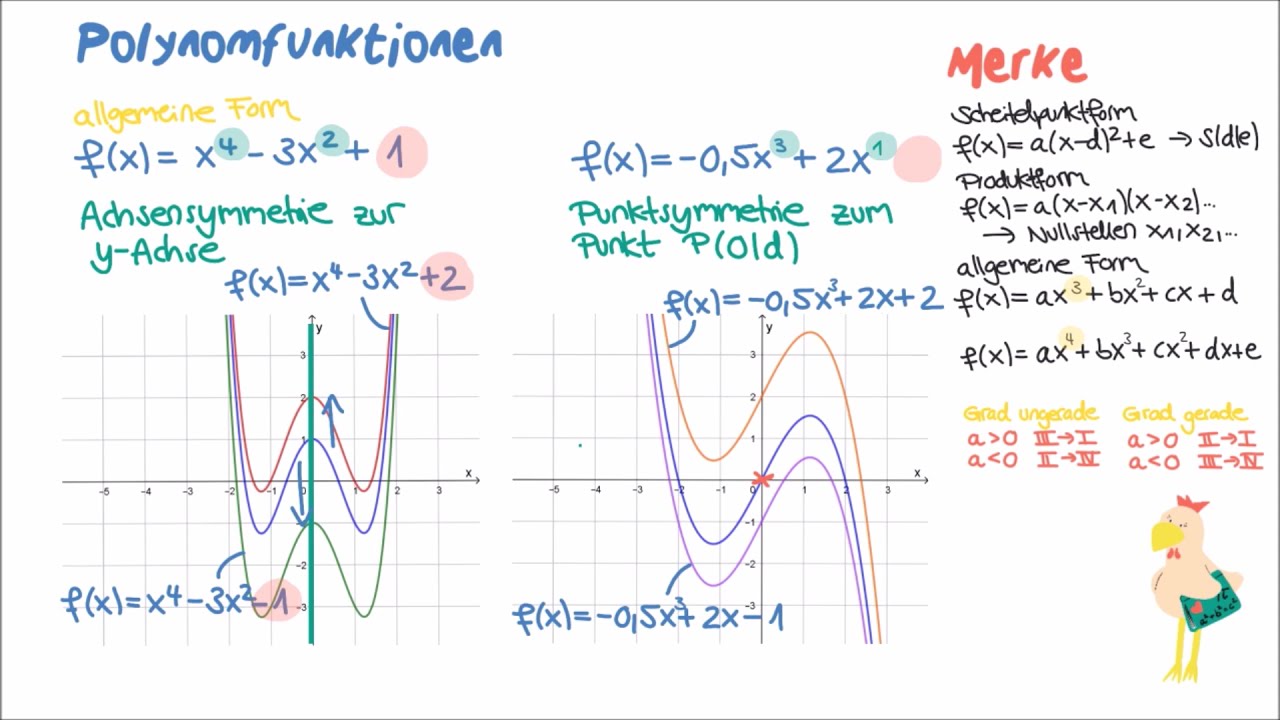 Polynomfunktionen
allgemeine Form
f(x) = x⁴ - 3x² + 1
Achsensymmetrie zur
y-Achse
f(x) = x⁴ - 3x² + 2
y
3
2
1
x
-5 -4 -3 -2 -1 0 1 2 3
-1
-2
-3
f(x) = x⁴ - 3x² - 1
f(x) = -0,5x³ + 2x¹
Punktsymmetrie zum
Punkt P(0|d)
f(x) = -0,5x³ + 2x + 2
y
3
2
1
x
-5 -4 -3 -2 -1 0 1 2 3
-1
-2
-3
f(x) = -0,5x³ + 2x - 1
Merke
Scheitelpunktform
f(x) = a(x-d)² + e → S(d|e)
Produktform
f(x) = a(x-x1)(x-x2)...
→ Nullstellen x1, x2, ...
allgemeine Form
f(x) = ax³ + bx² + cx + d
f(x) = ax⁴ + bx³ + cx² + dx + e
Grad ungerade Grad gerade
a>0 III→I a>0 II→I
a<0 II→IV a<0 III→IV